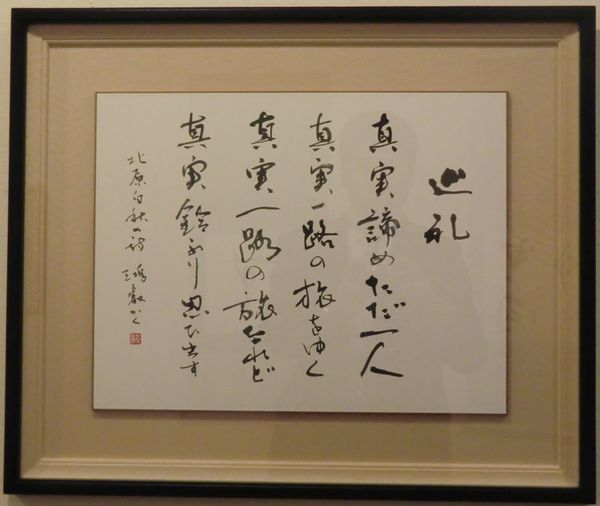 巡礼
真実諦めただ一人
真実一路の旅をゆく
真実一路の旅なれど
真実鈴ふり思ひ出す
北原白秋の詩 鴻嶽かく